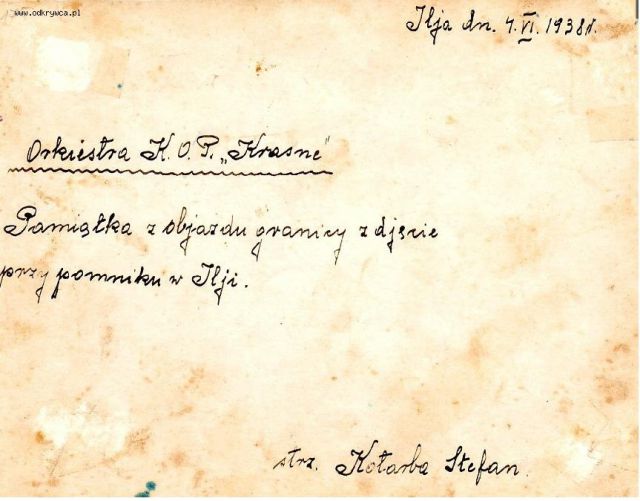 www.odkrywca.pl
Ilja dn. 7.VI.1938r.
Orkiestra K.O.P. „Krasne"
Pamiątka z objazdu granicy zdjęcie
przy pomniku w Ilji.
strz. Kotarba Stefan